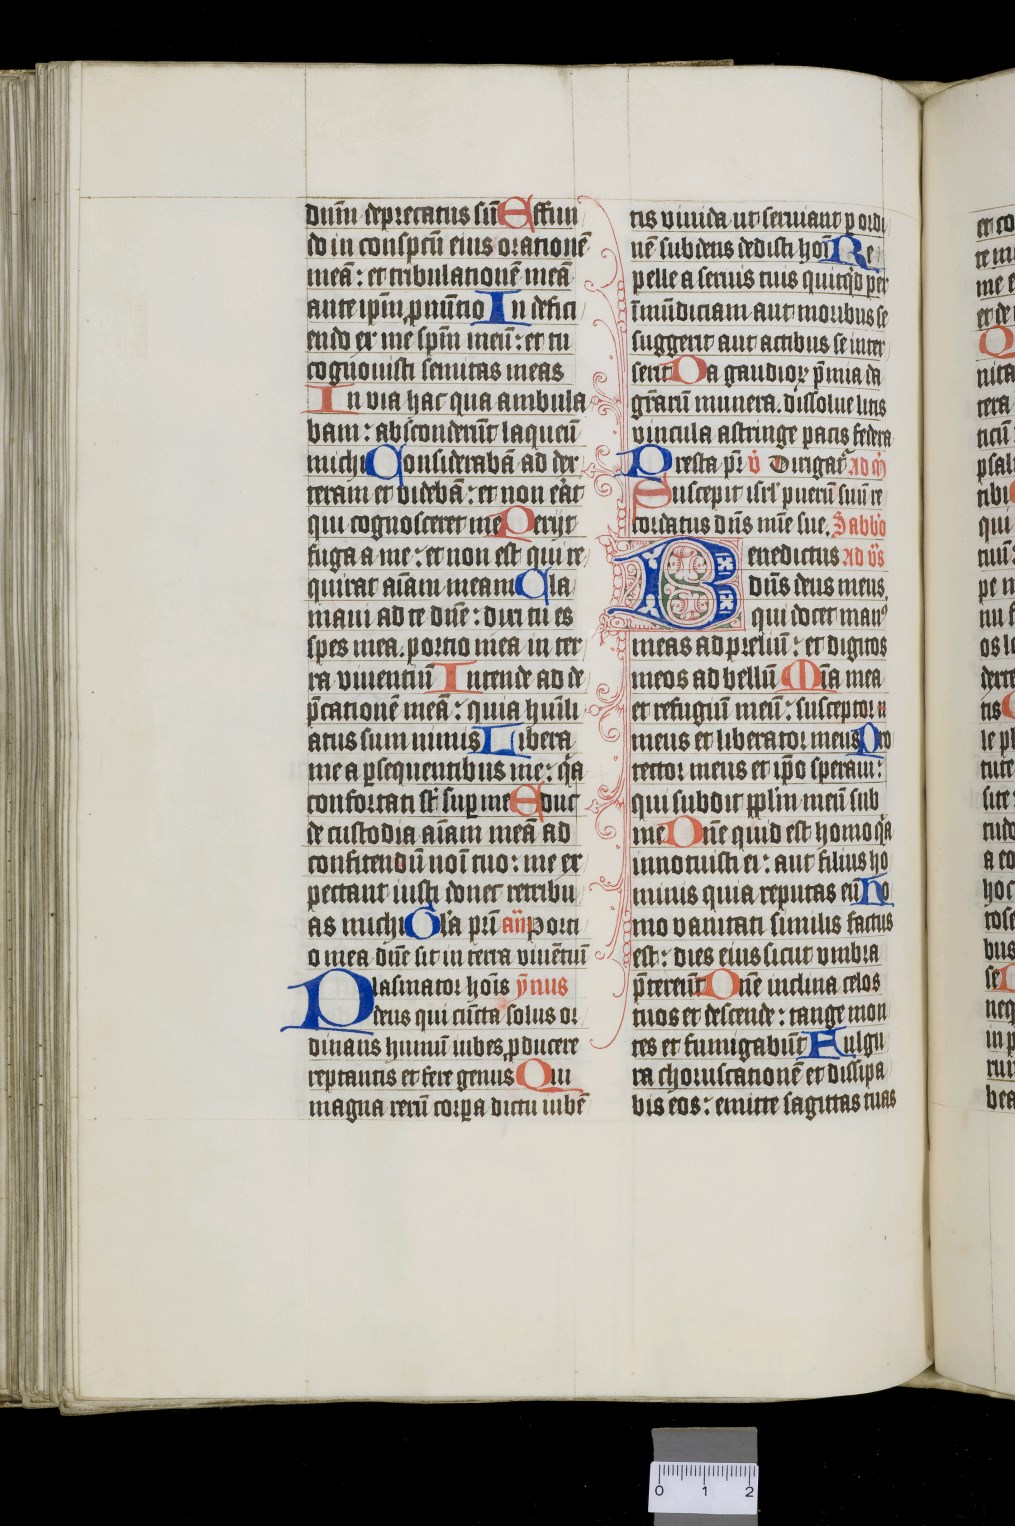 dnm̄ deprecatus sū Effun
do in conspectū eius orationē
meā: et tribulationē meā
ante ipm̄ pnūtio In defici
endo ex me spm̄ meū: et tu
cognouisti semitas meas
In via hac qua ambula
bam: absconderūt laqueū
michi Considerabā ad dex
teram et videbā: et non erat
qui cognosceret me Perijt
fuga a me: et non est qui re
quirat aīam meam Cla
maui ad te dn̄e: dixi tu es
spes mea. portio mea in ter
ra viuentiū Intende ad de
p̄cationē meā: quia humili
atus sum nimis Libera
me a p̱sequentibus me: q̄a
confortati st̄ sup̱ me Educ
de custodia aīam meā ad
confitendū noī tuo: me ex
pectant iusti donec retribu
as michi Gl̄a pr̄i an̄ Porti
o mea dn̄e sit in terra viuētiū
Plasmator hoīs ẏnus
deus qui cūcta solus or
dinans humū iubes ꝓducere
reptantis et fere genus Qui
magna rerū corp̱a dictu iubē
tis viuida ut seruiant p̱ ordi
nē subdens dedisti hoī Re
pelle a seruis tuis quitq̇d per
īmūdiciam aut moribus se
suggerit aut actibus se inter
serit Da gaudioꝝ p̄mia da
gr̄arū munera. dissolue litis
vincula astringe pacis federa
Presta pr̄ v̄ Dirigat᷑ ad m̄
Suscepit isrl̄ puerū suū re
cordatus dn̄s mīe sue. Sabb'o
Benedictus ad v̄s
dn̄s deus meus
qui docet manꝰ
meas ad preliū: et digitos
meos ad bellū Mīa mea
et refugiū meū: susceptor
meus et liberator meus Pro
tector meus et ip̄o speraui:
qui subdit pp̱lm̄ meū sub
me Dn̄e quid est homo q̄a
innotuisti ei: aut filius ho
minis quia reputas eū Ho
mo vanitati similis factus
est: dies eius sicut vmbra
p̄tereūt Dn̄e inclina celos
tuos et descende: tange mon
tes et fumigabūt Fulgu
ra choruscationē et dissipa
bis eos: emitte sagittas tuas